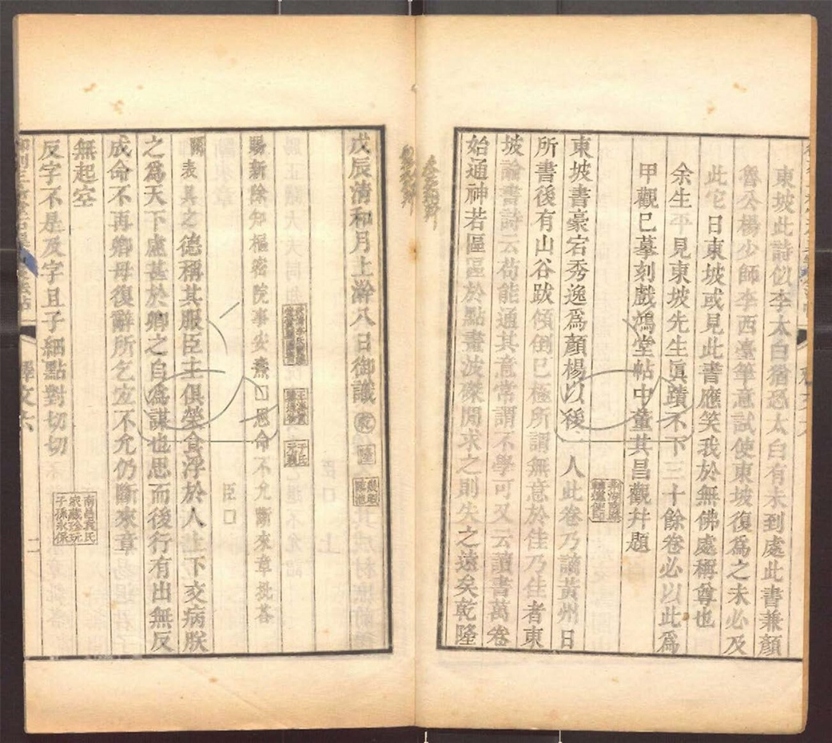 東坡此詩似李太白猶恐太白有未到處此書兼顏
魯公楊少師李西臺筆意試使東坡復為之未必及
此它日東坡或見此書應笑我於無佛處稱尊也
余生平見東坡先生眞蹟不下三十餘卷必以此爲
甲觀已摹刻戲鴻堂帖中董其昌觀幷題
東坡書豪宕秀逸爲顏楊以後一人此卷乃謫黃州日
所書後有山谷跋傾倒已極所謂無意於佳乃佳者東
坡論書詩云苟能通其意常謂不學可又云讀書萬卷
始通神若區區於點畫波磔間求之則失之遠矣乾隆
戊辰清和月上澣八日御識
乾 隆
賜新除知樞密院事安燾
恩命不允斷來章批荅
臣囗
表具之德稱其服臣主俱榮食浮於人上下交病朕
之爲天下慮甚於卿之自爲謀也思而後行有出無反
成命不再卿毋復辭所乞宜不允仍斷來章
無起空
反字不是及字且子細點對切切
子孫永保
釋文六
二